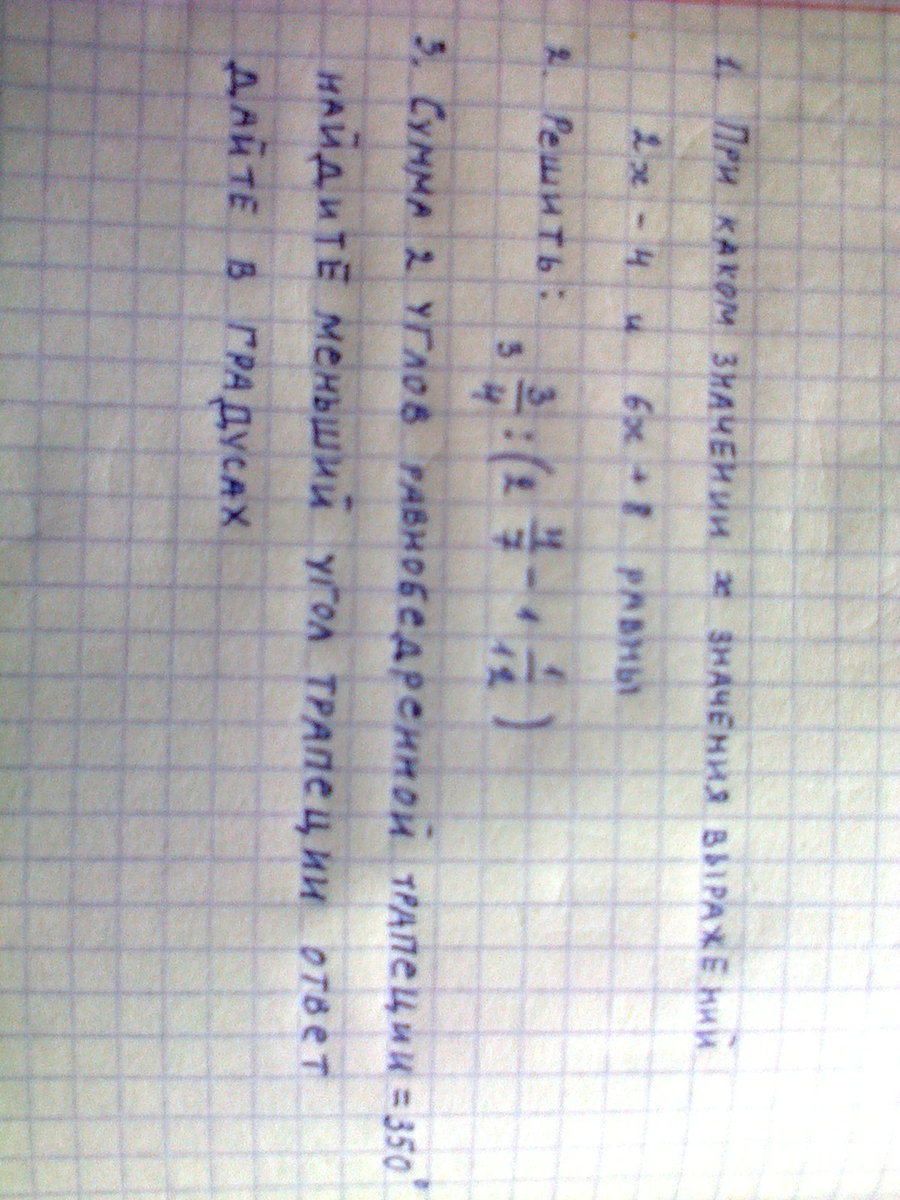 1. При каком значении x значения выражений
2x - 4 и 6x + 8 равны
2. Решить: 3 3/4 : (2 4/7 - 1 1/12)
3. Сумма 2 углов равнобедренной трапеции = 350°
найдите меньший угол трапеции ответ
дайте в градусах